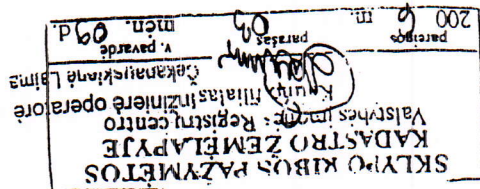 SKLYPO RIBOS PAŽYMĖTOS
KADASTRO ŽEMĖLAPYJE
Valstybės įmonė Registrų centro
filialas inžinierė operatorė
Čekanauskienė Laima
pareigos parašas v. pavardė
200 6 m. 03 mėn. 09 d.